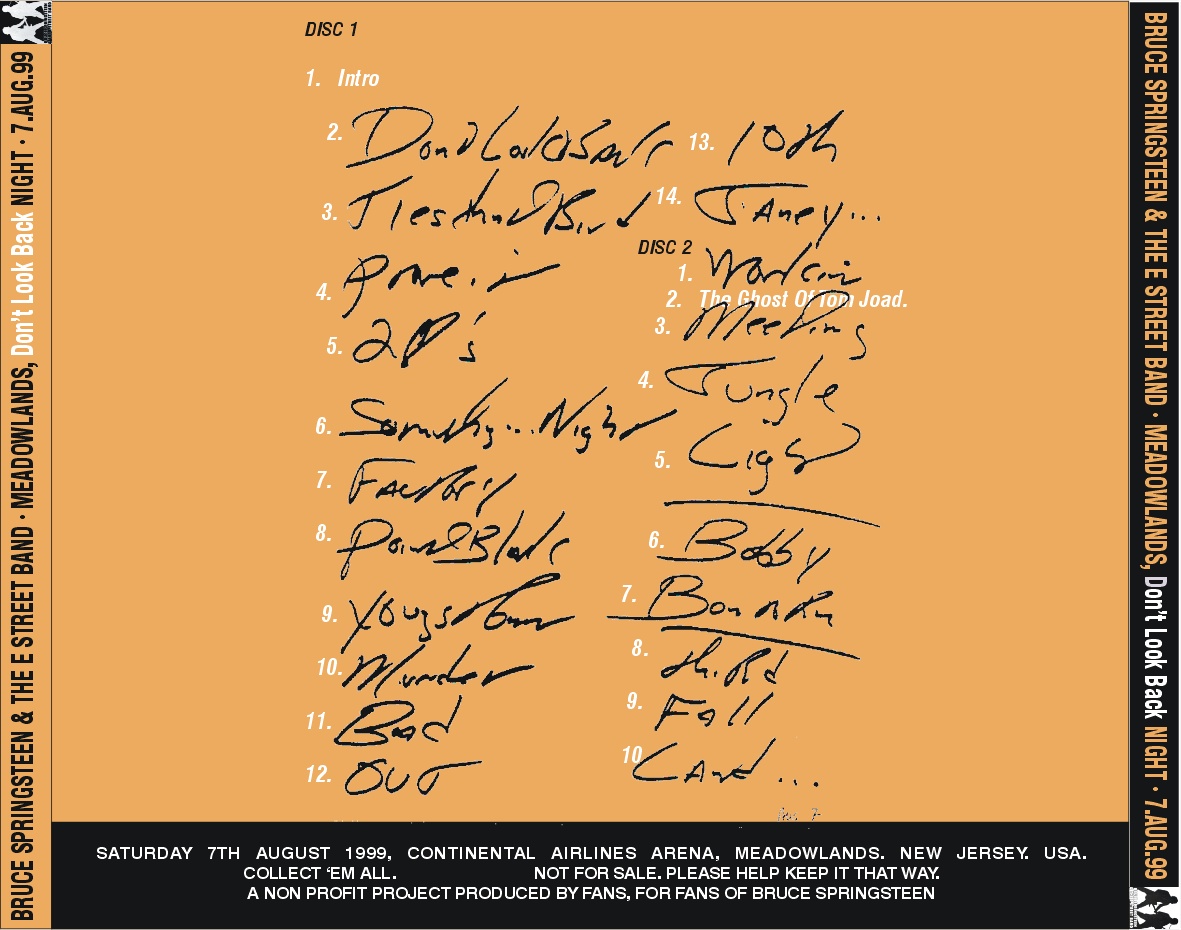 BRUCE SPRINGSTEEN & THE E STREET BAND · MEADOWLANDS, Don't Look Back NIGHT · 7.AUG.99
DISC 1
1. Intro
2. Don't Look Back
3. Ties that Bind
4. Prove it
5. 2 P's
6. Somethg... Night
7. Factory
8. Point Blank
9. Youngstown
10. Murder
11. Bad
12. OUT
13. 10th
14. Janey...
DISC 2
1. Workin
2. The Ghost Of Tom Joad.
3. Meeting
4. Jungle
5. Light
6. Bobby
7. Born to Run
8. thiRd
9. Fall
10 Land...
SATURDAY 7TH AUGUST 1999, CONTINENTAL AIRLINES ARENA, MEADOWLANDS. NEW JERSEY. USA.
COLLECT 'EM ALL. NOT FOR SALE. PLEASE HELP KEEP IT THAT WAY.
A NON PROFIT PROJECT PRODUCED BY FANS, FOR FANS OF BRUCE SPRINGSTEEN
BRUCE SPRINGSTEEN & THE E STREET BAND · MEADOWLANDS, Don't Look Back NIGHT · 7.AUG.99